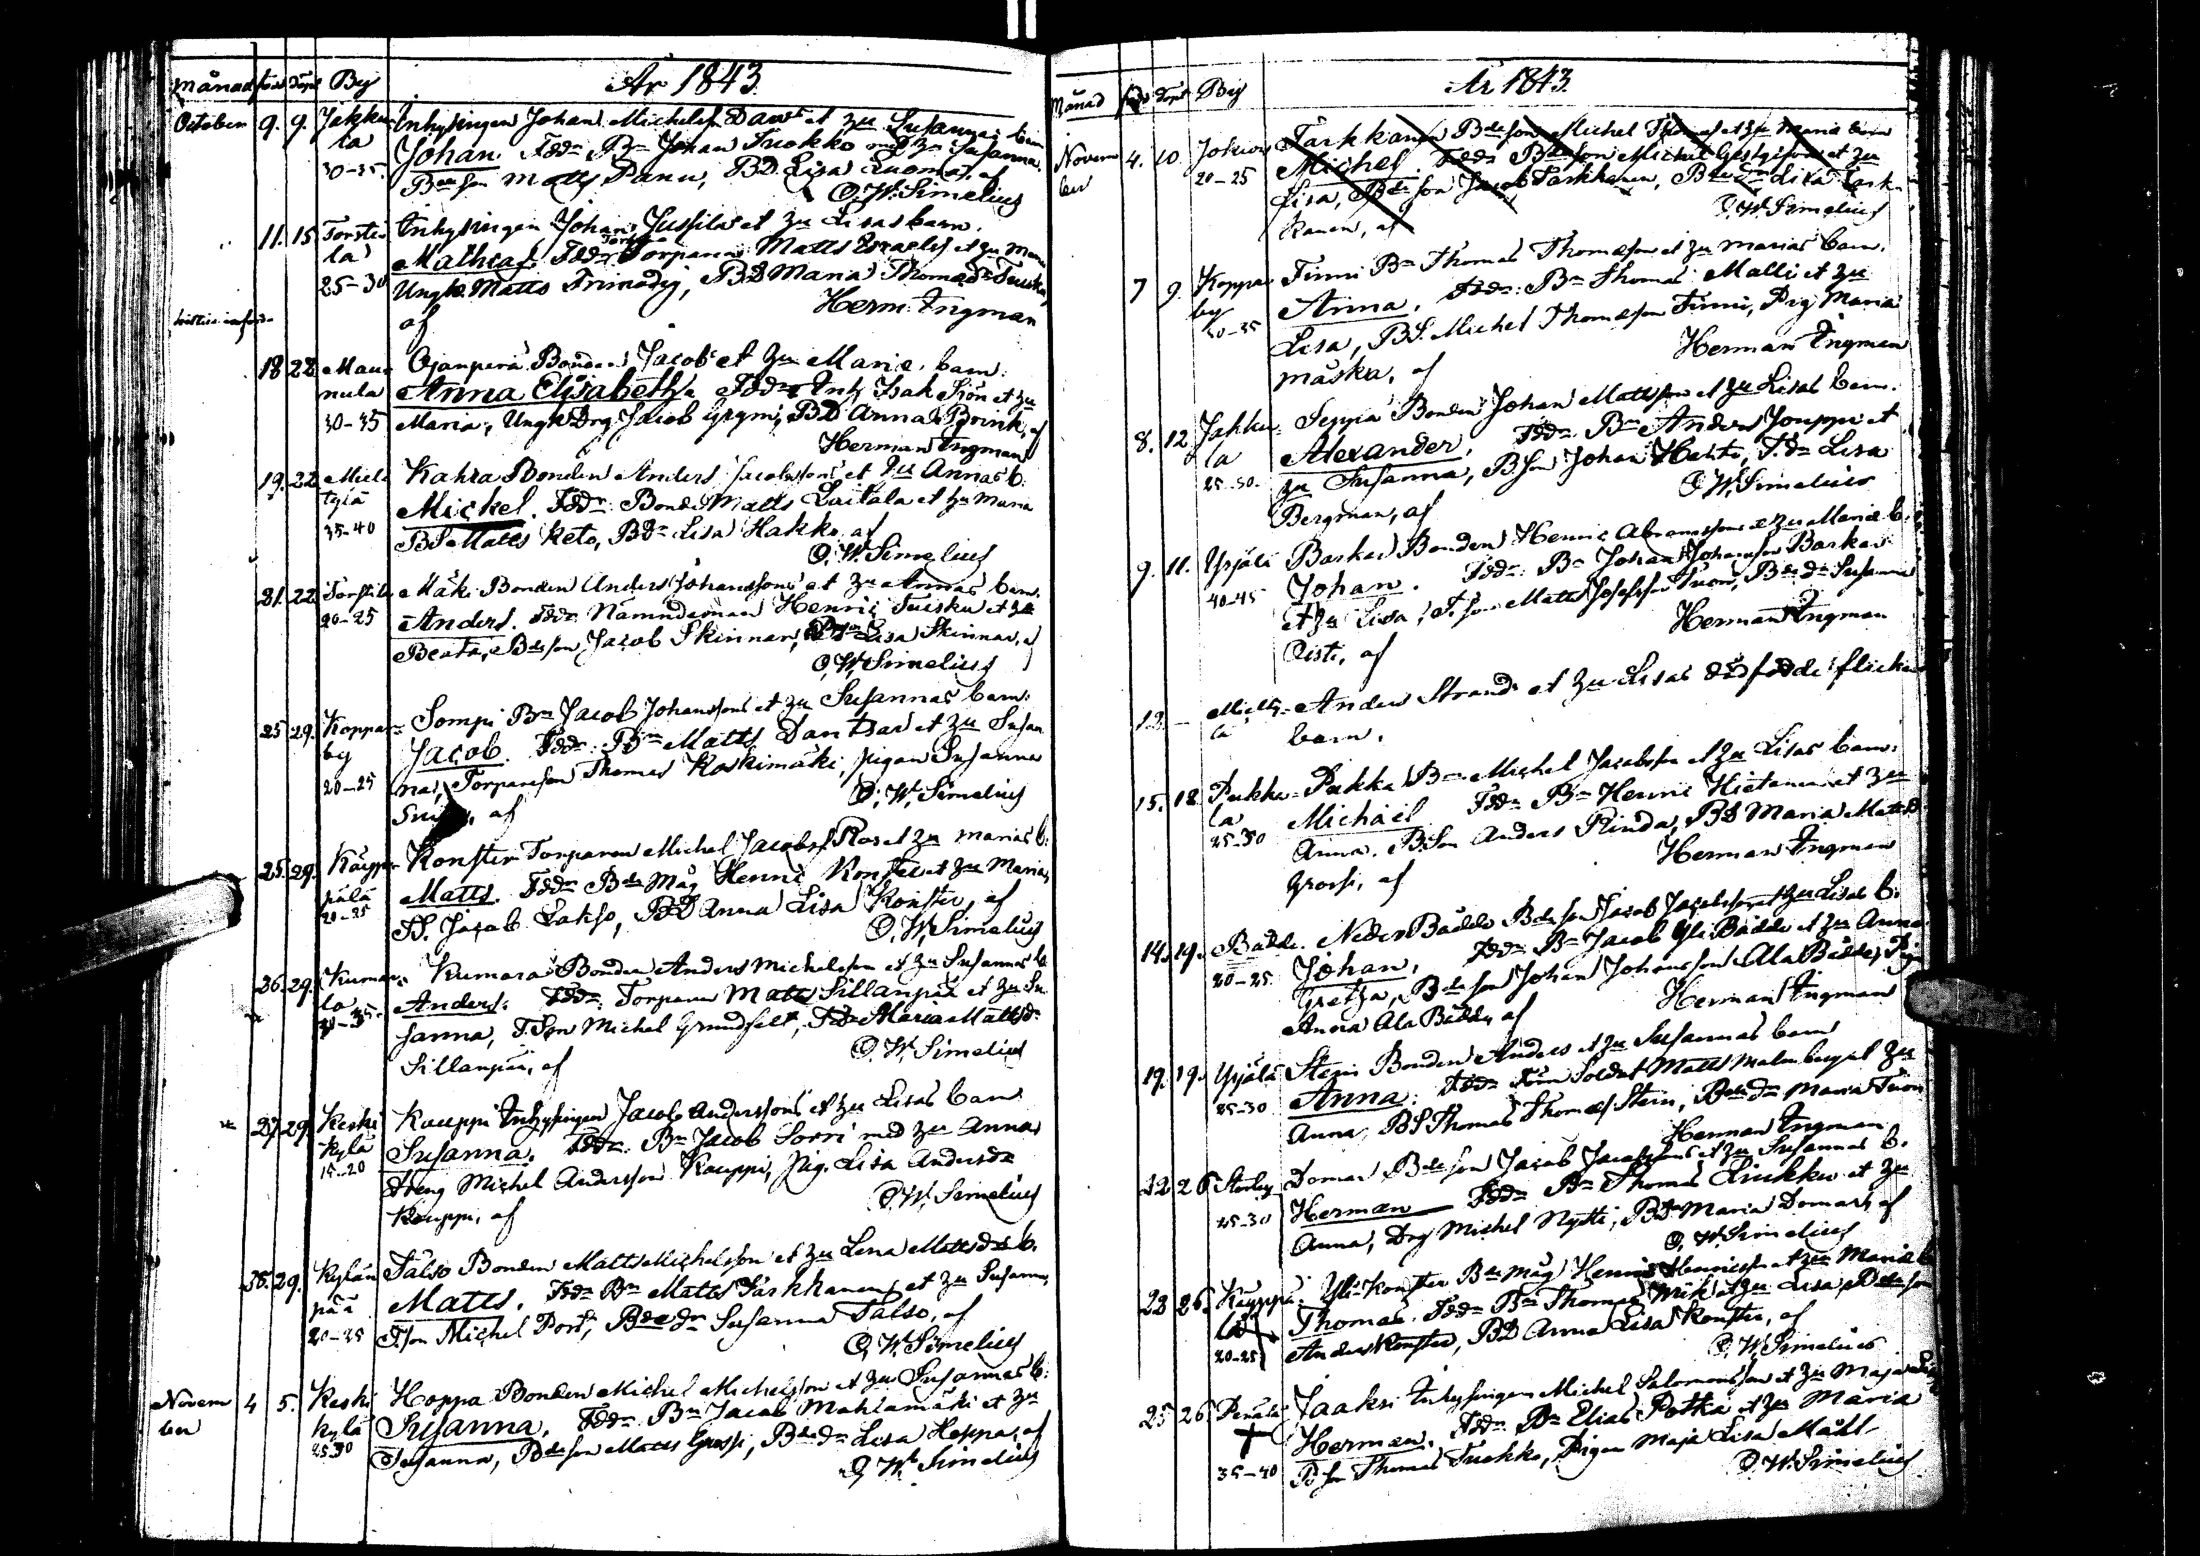 Månad född döpt By År 1843.
October 9. 9. Jakku Inhysingen Johan Michelss. Daws et hu Susannas barn
la Johan. Fddr Bn Johan Tuokko med hu Susanna.
30-35. Bdeson Matts Panu, BD Lisa Luoma, af
O. W. Simelius
11. 15 Torsti Inhysingen Johan Jussilas et hu Lisas barn.
la Mathias. Fddr Torparen Matts Israelss et hu Maria
25-30 Ungk. Matts Frimodig, BD Maria Thomasdr Tuisku,
af Herm. Ingman
18 22 Mau Ojanperä Bonden Jacobs et hu Mariæ barn.
nula Anna Elisabetha Fddr Inh. Isak Sjön et hu
30-35 Maria, Ungk Drg Jacob, BD Anna Brink, af
Herman Ingman
19. 22 Miel Kahra Bonden Anders Jacobssons et hu Annas b.
tylä Mickel. Fddr Bonden Matts Laitala et hu Maria
35-40 BS Matts Keto, Bdr Lisa Hakko, af
O. W. Simelius
21. 22 Torstila Mäki Bonden Anders Johanssons et hu Annas barn.
20-25 Anders. Fddr Nämndeman Henric Tuisku et hu
Beata, Bdeson Jacob Skinnar, Lisa Skinnar, af
O. W. Simelius
25 29. Koppar= Sompi Bn Jacob Johanssons et hu Susannas barn.
by Jacob. Fddr: Bn Matts Dantsar et hu Susan
20-25 na, Torpareson Thomas Koskimäki, pigan Susanna
af O. W. Simelius
25. 29. Käyppä Konster Torparen Michel Jacobss Ros et hu Marias b.
pälä Matts. Fddr Bde måg Henric Konster et hu Maria,
20-25 BS. Jacob Lakso, BD Anna Lisa Konster, af
O. W. Simelius
26. 29. Kumara Kumara Bonden Anders Michelsson et hu Susannas b.
la Anders. Fddr: Torparen Matts Sillanpää et hu Su
30-35. sanna, T.Son Michel Grundfelt, Tdr Maria Mattsdr
Sillanpää, af O. W. Simelius
27. 29 Keski Kauppi Inhysingen Jacob Anderssons et hu Lisas barn
kylä Susanna. Fddr: Bn Jacob Sorri med hu Anna,
15-20 Dreng Michel Andersson Kauppi, Pig. Lisa Andersdr
Kauppi, af O. W. Simelius
28. 29. Kylän Talso Bonden Matts Michelsson et hu Lena Mattsdrs b.
pää Matts. Fddr Bn Matts Tarkkanen et hu Susanna,
20-25 T.son Michel Port, Bdedr Susanna Talso, af
O. W. Simelius
Novem 4 5. Keski Hoppa Bonden Michel Michelsson et hu Susannas b.
ber kylä Susanna. Fddr: Bn Jacob Mahlamäki et hu
25-30 Susanna, Bdeson Matts Grossi, Bdedr Lisa Hoppa, af
O. W. Simelius
Månad född döpt By År 1843.
Novem 4. 10. Jokioi Tarkkanen Bdeson Michel Thomass et hu Mariæ barn
ber 20-25 Michel. Fddr Bdeson Michel et hu
Lisa, Bdeson Jacob Tarkkanen, Bdedr Lisa Tark-
kanen, af O. W. Simelius
7 9. Koppar Finni Bn Thomas Thomasson et hu Marias barn.
by Anna. Fddr: Bn Thomas Malli et hu
30-35 Lisa, BS. Michel Thomasson Finni, Pig. Maria
Maska, af Herman Ingman
8. 12 Jakku= Seppä Bonden Johan Mattsson et hu Lisas barn.
la Alexander. Fddr. Bn Anders Jouppi et
25-30. hu Susanna, B.Son Johan, T.dr Lisa
Bergman, af O. W. Simelius
9. 11. Yrjälä Barkar Bonden Henric Abramssons et hu Mariæ b.
40-45 Johan. Fddr: Bn Johan Johansson Barkar
et hu Lisa, T.son Matts Josefsson Tuon, Bdedr Susanna
Risti, af Herman Ingman
12. - Mielty= Anders Strands et hu Lisas dödfödde flicke
lä barn.
15. 18 Pukka= Pukka Bn Michel Jacobsson et hu Lisas barn.
la Michael Fddr Bn Henric Hietanen et hu
25-30 Anna. B.Son Anders Rinda, BD Maria Mattsd.
Grossi, af Herman Ingman
14. 19. Bädde. Neder Bädde Bdeson Jacob Jacobsson et hu Lisas b.
20-25. Johan. Fddr Bn Jacob Yli Bädde et hu Anna
Gretha, Bdeson Johan Johansson Ala Bädde, Pig.
Anna Ala Bädde, af Herman Ingman
19. 19. Yrjälä Stein Bonden Anders et hu Susannas barn
25-30 Anna. Fddr Förn Soldat Matts Malmberg et hu
Anna, BS Thomas Thomass Stein, Bdedr Maria Tuon
Herman Ingman
22 26 Storby Domar Bdeson Jacob Jacobssons et hu Susannas b.
25-30 Herman Fddr Bn Thomas Liukku et hu
Anna, Drg Michel Nytti, Bdr Maria Domars, af
O. W. Simelius
23 26. Käyppä= Yli-Konster Bde måg Henric Henricsson et hu Mariæ b.
lä Thomas. Fddr Bn Thomas Mik et hu Lisa, Bdeson
20-25 Anders Konster, BD Anna Lisa Konster, af
O. W. Simelius
25 26. Penälä Jaaksi Inhysingen Michel Salomonsson et hu Maja
Herman. Fddr Bn Elias Potka et hu Maria
35-40 B son Thomas Tuokko, Pigan Maja Lisa
O. W. Simelius